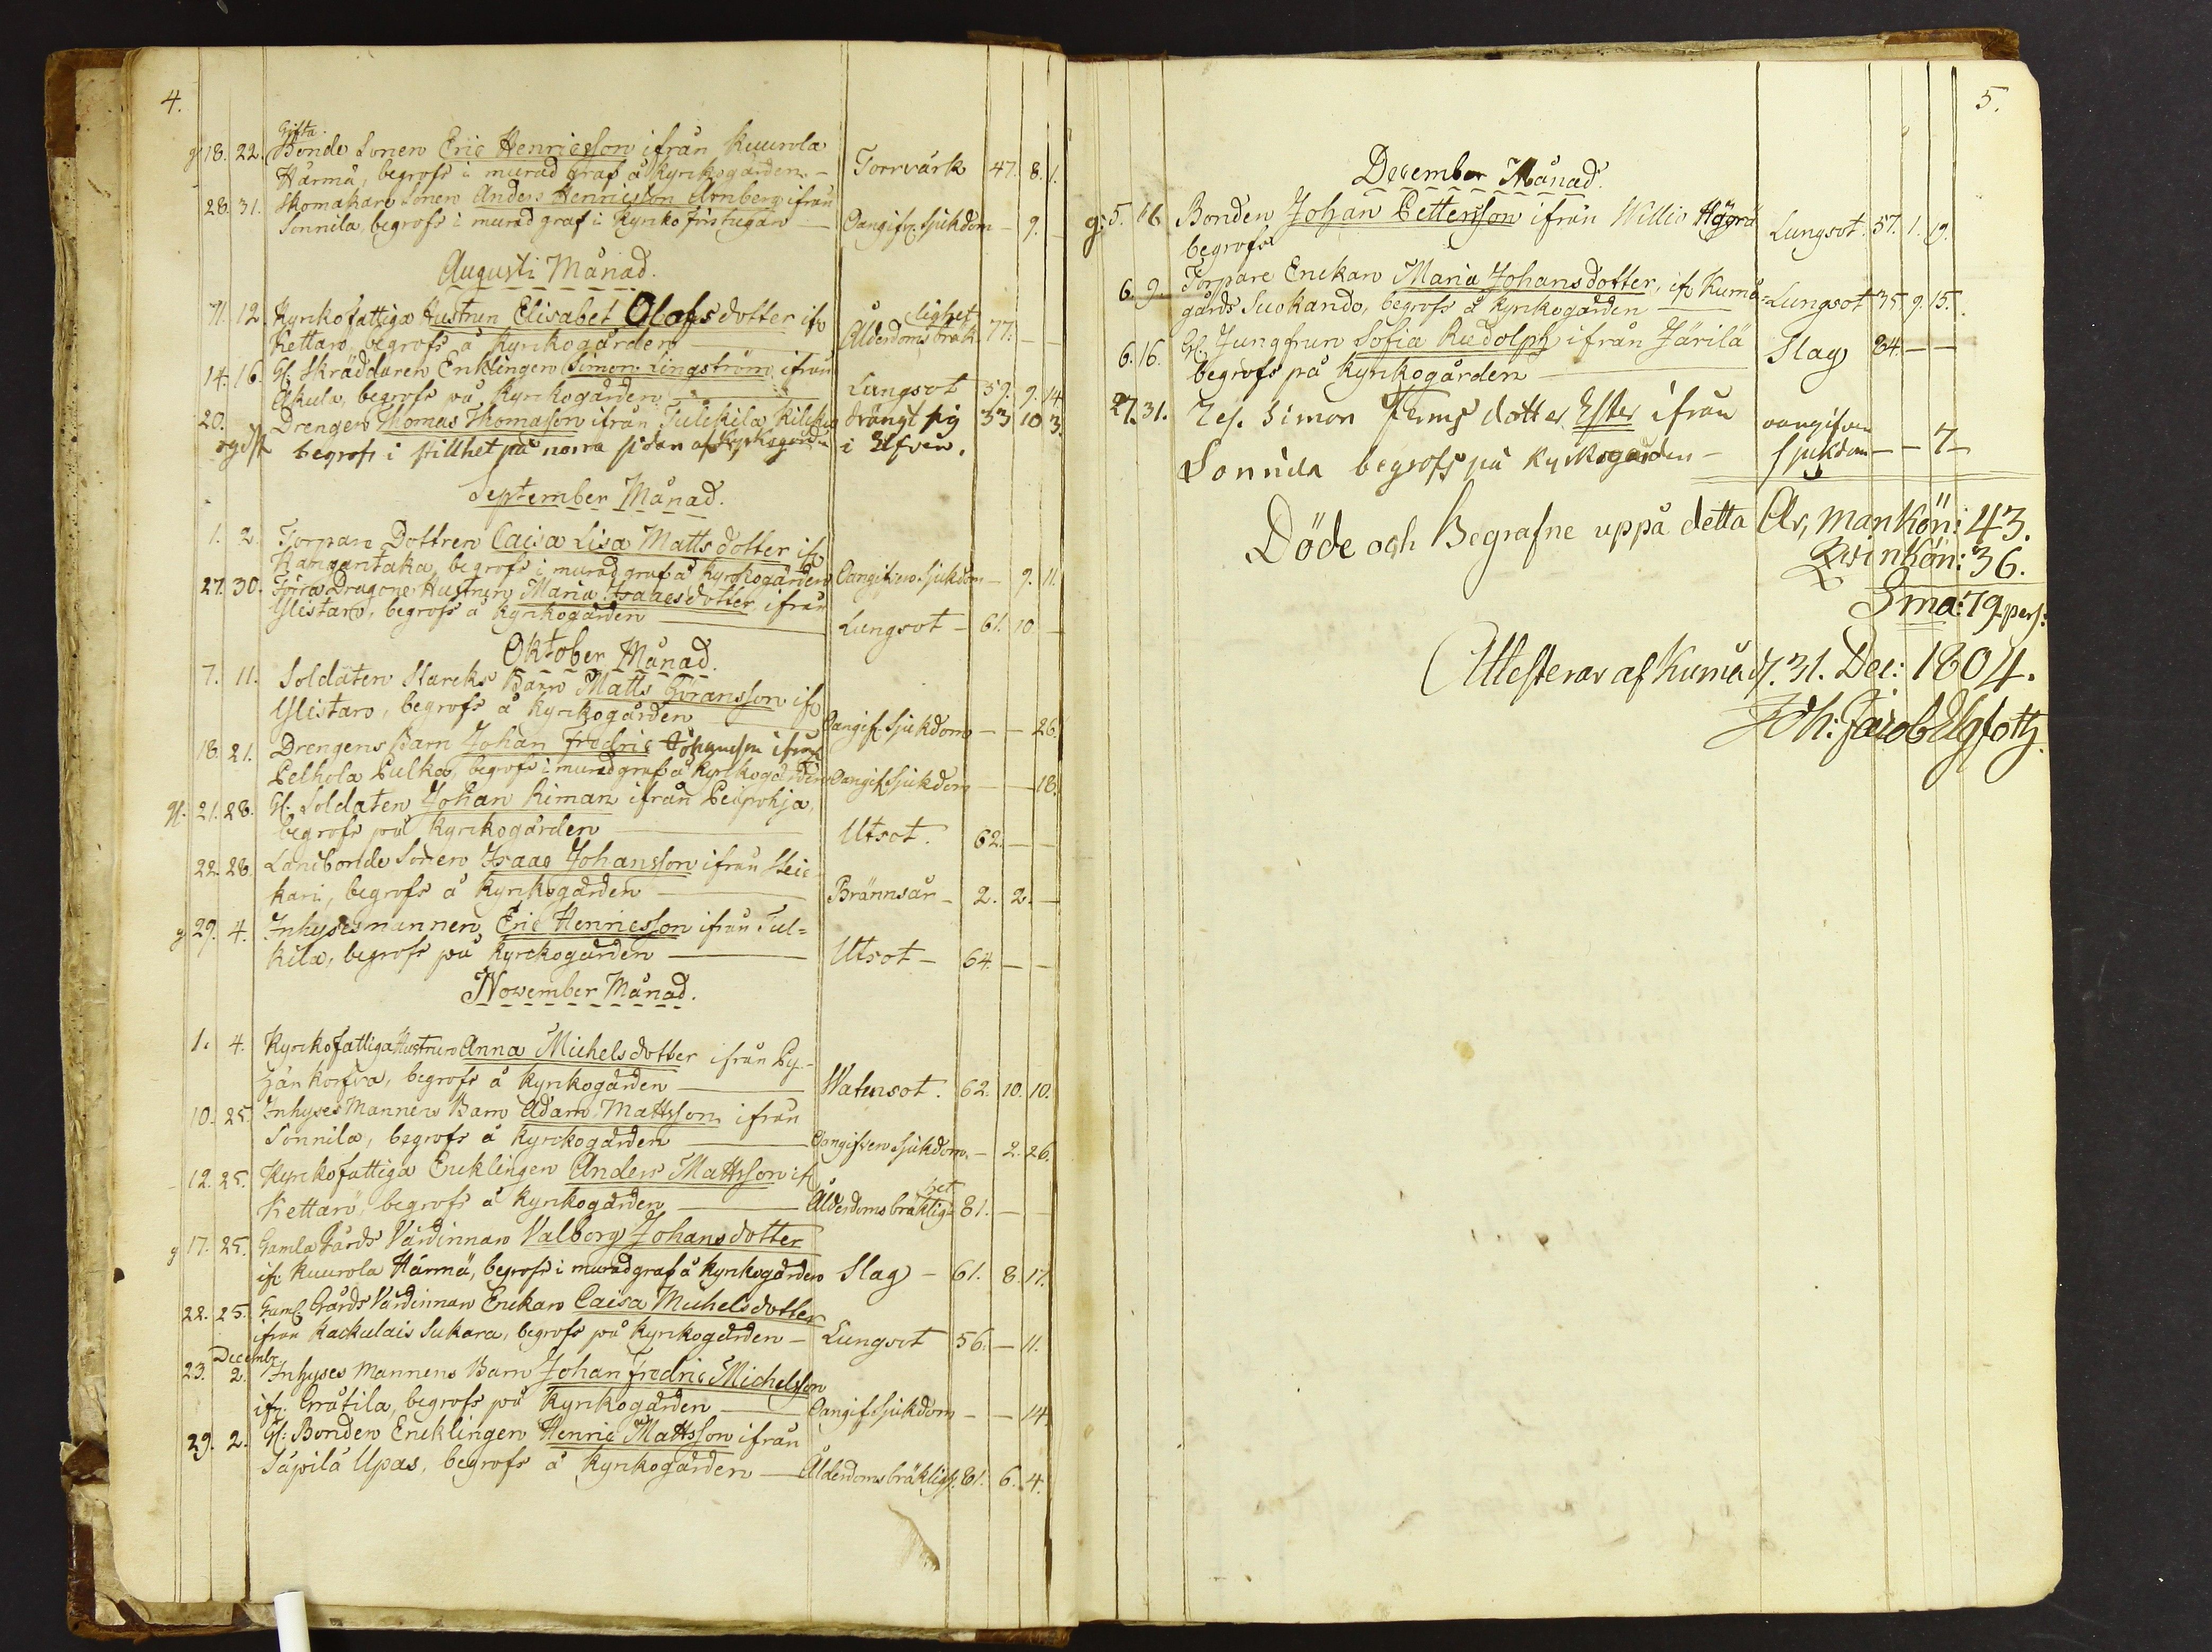 4.
Gifta
g 18. 22. Bonde Sonen Eric Henricsson ifrån Kuurola
Härmä, begrofs i murad graf å Kyrckogården. - Torrvärk 47. 8. 1.
28. 31. Skomakare Sonen Anders Henricsson Arnberg ifrån
Sonnila, begrofs i murad graf i Kyrko förstugan — Oangifv. Sjukdom - 9. -
Augusti Månad.
11. 12. Kyrkofattiga Hustrun Elisabet Olofsdotter ifr. lighet
Kettaro, begrofs å Kyrckogården Ålderdoms bräk- 77. — —
14. 16. Gl. Skräddaren Enklingen Simon Lingström ifrån
Akula, begrofs på Kyrckogården Lungsot 59. 9. 14
20. Drengen Thomas Thomasson ifrån Tulkkila drängt sig 33 10 3.
begrofs i stillhet på norra sidan af Kyrkogården i Elfven.
September Månad.
1. 2. Torpare Dottren Caisa Lisa Matts dotter ifr
Kangantaka, begrofs i murad graf å Kyrckogården Oangifven Sjukdom - 9. 11.
27. 30. Förra Dragone Hustrun Maria Isaacsdotter ifrån
Ylistaro, begrofs å Kyrkogården Lungsot - 61. 10 —
Oktober Månad.
7. 11. Soldaten Starcks Barn Matts Göransson ifr
Ylistaro, begrofs å Kyrckogården Oangif. Sjukdom — — 26.
18. 21. Drengens Barn Johan Fredric Johansson ifrån
Pelhola Pulka, begrofs i murad graf å Kyrckogården Oangif Sjukdom — — 18.
21. 28. Gl. Soldaten Johan Riman ifrån Peipohja,
begrofs på Kyrckogården Utsot. 62. — —
22. 28. Landbonde Sonen Isaac Johansson ifrån
kari, begrofs å Kyrckogården Brännsår - 2. 2. —
g 29. 4. Inhysesmannen Eric Henricsson ifrån Tul-
kila, begrofs på Kyrckogården Utsot - 64. — —
November Månad.
1. 4. Kyrckofattiga Hustrun Anna Michelsdotter ifrån Py-
hänkorfva, begrofs å Kyrkogården Watusot. 62. 10. 10.
10. 25. Inhyses Mannens Barn Adam Mattsson ifrån
Sonnila, begrofs å Kyrckogården Oangifven Sjukdom. - 2. 26.
12. 25. Kyrckofattiga Encklingen Anders Mattsson ifr het
Kettaro, begrofs å Kyrckogården Ålderdoms bräklig- 81. — —
g 17. 25. Gamla Gårds Värdinnan Valborg Johansdotter
ifr. Kuurola Härmä, begrofs i murad graf å Kyrkogården Slag - 61. 8. 17.
22. 25. Gaml. Gårds Värdinnan Enckan Caisa Michelsdotter
ifrån Kackulais Sukara, begrofs på Kyrkogården — Lungsot 56. — 11.
Decembr.
23. 2. Inhyses Mannens Barn Johan Fredric Michelsson
ifr. Gråtila, begrofs på Kyrkogården Oangif Sjukdom — — 14.
29. 2. Gl: Bonden Encklingen Henric Mattsson ifrån
Säpilä Upas, begrofs å Kyrkogården — Ålderdoms bräkligh. 81. 6. 4.
5.
December Månad.
g: 5. 16 Bonden Johan Pettersson ifrån Willio
begrofs Lungsot. 57. 1. 19.
6. 9. Torpare Enckan Maria Johansdotter, ifr Kumo
gårds Suokando, begrofs å Kyrkogården Lungsot 35 9. 15.
6. 16. Gl. Jungfrun Sofia Rudolph ifrån Järilä
begrofs på Kyrkogården Slag 84. — —
27. 31. Simon dotter Ester ifrån oangifven
Sonnila begrofs på Kyrkogården - sjukdom — — 7 —
Döde och Begrafne uppå detta År, Mankön: 43.
Qwinkön: 36.
Sma: 79. pers:
Attesterar af Kumo d. 31. Dec: 1804.
Joh: Jacob Elgfoth.